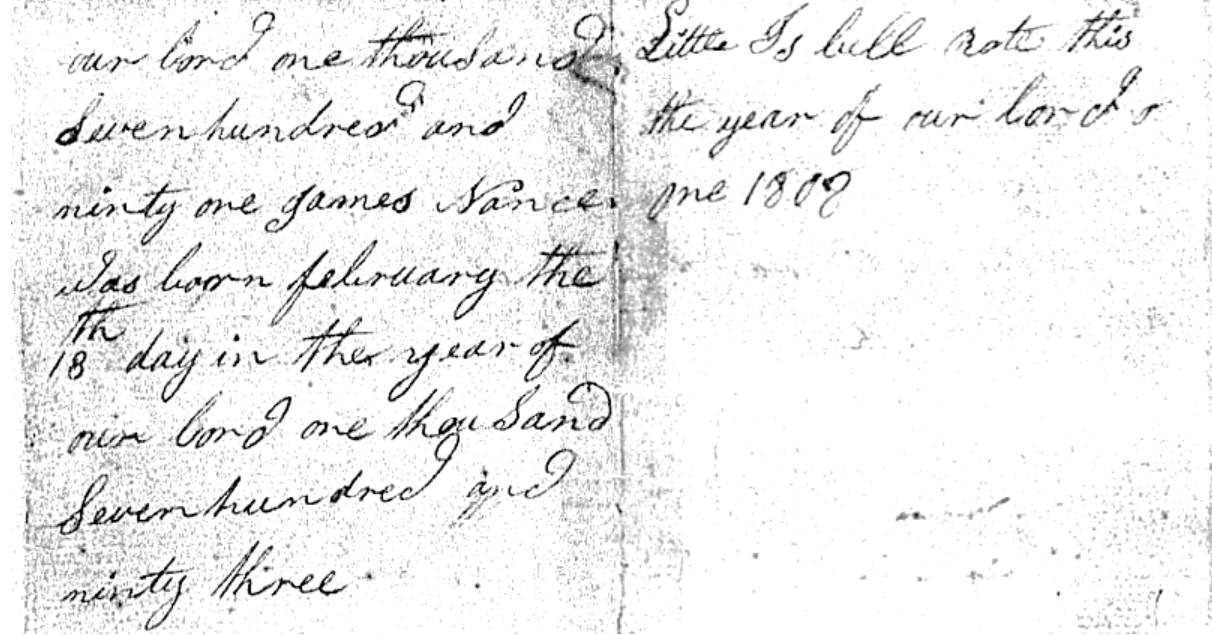 our lord one thousand
Seven hundred and
ninty one James Nance
Was born february the
18th day in the year of
our lord one thousand
Seven hundred and
ninty three
Little Is bell rote this
the year of our lord o
one 180